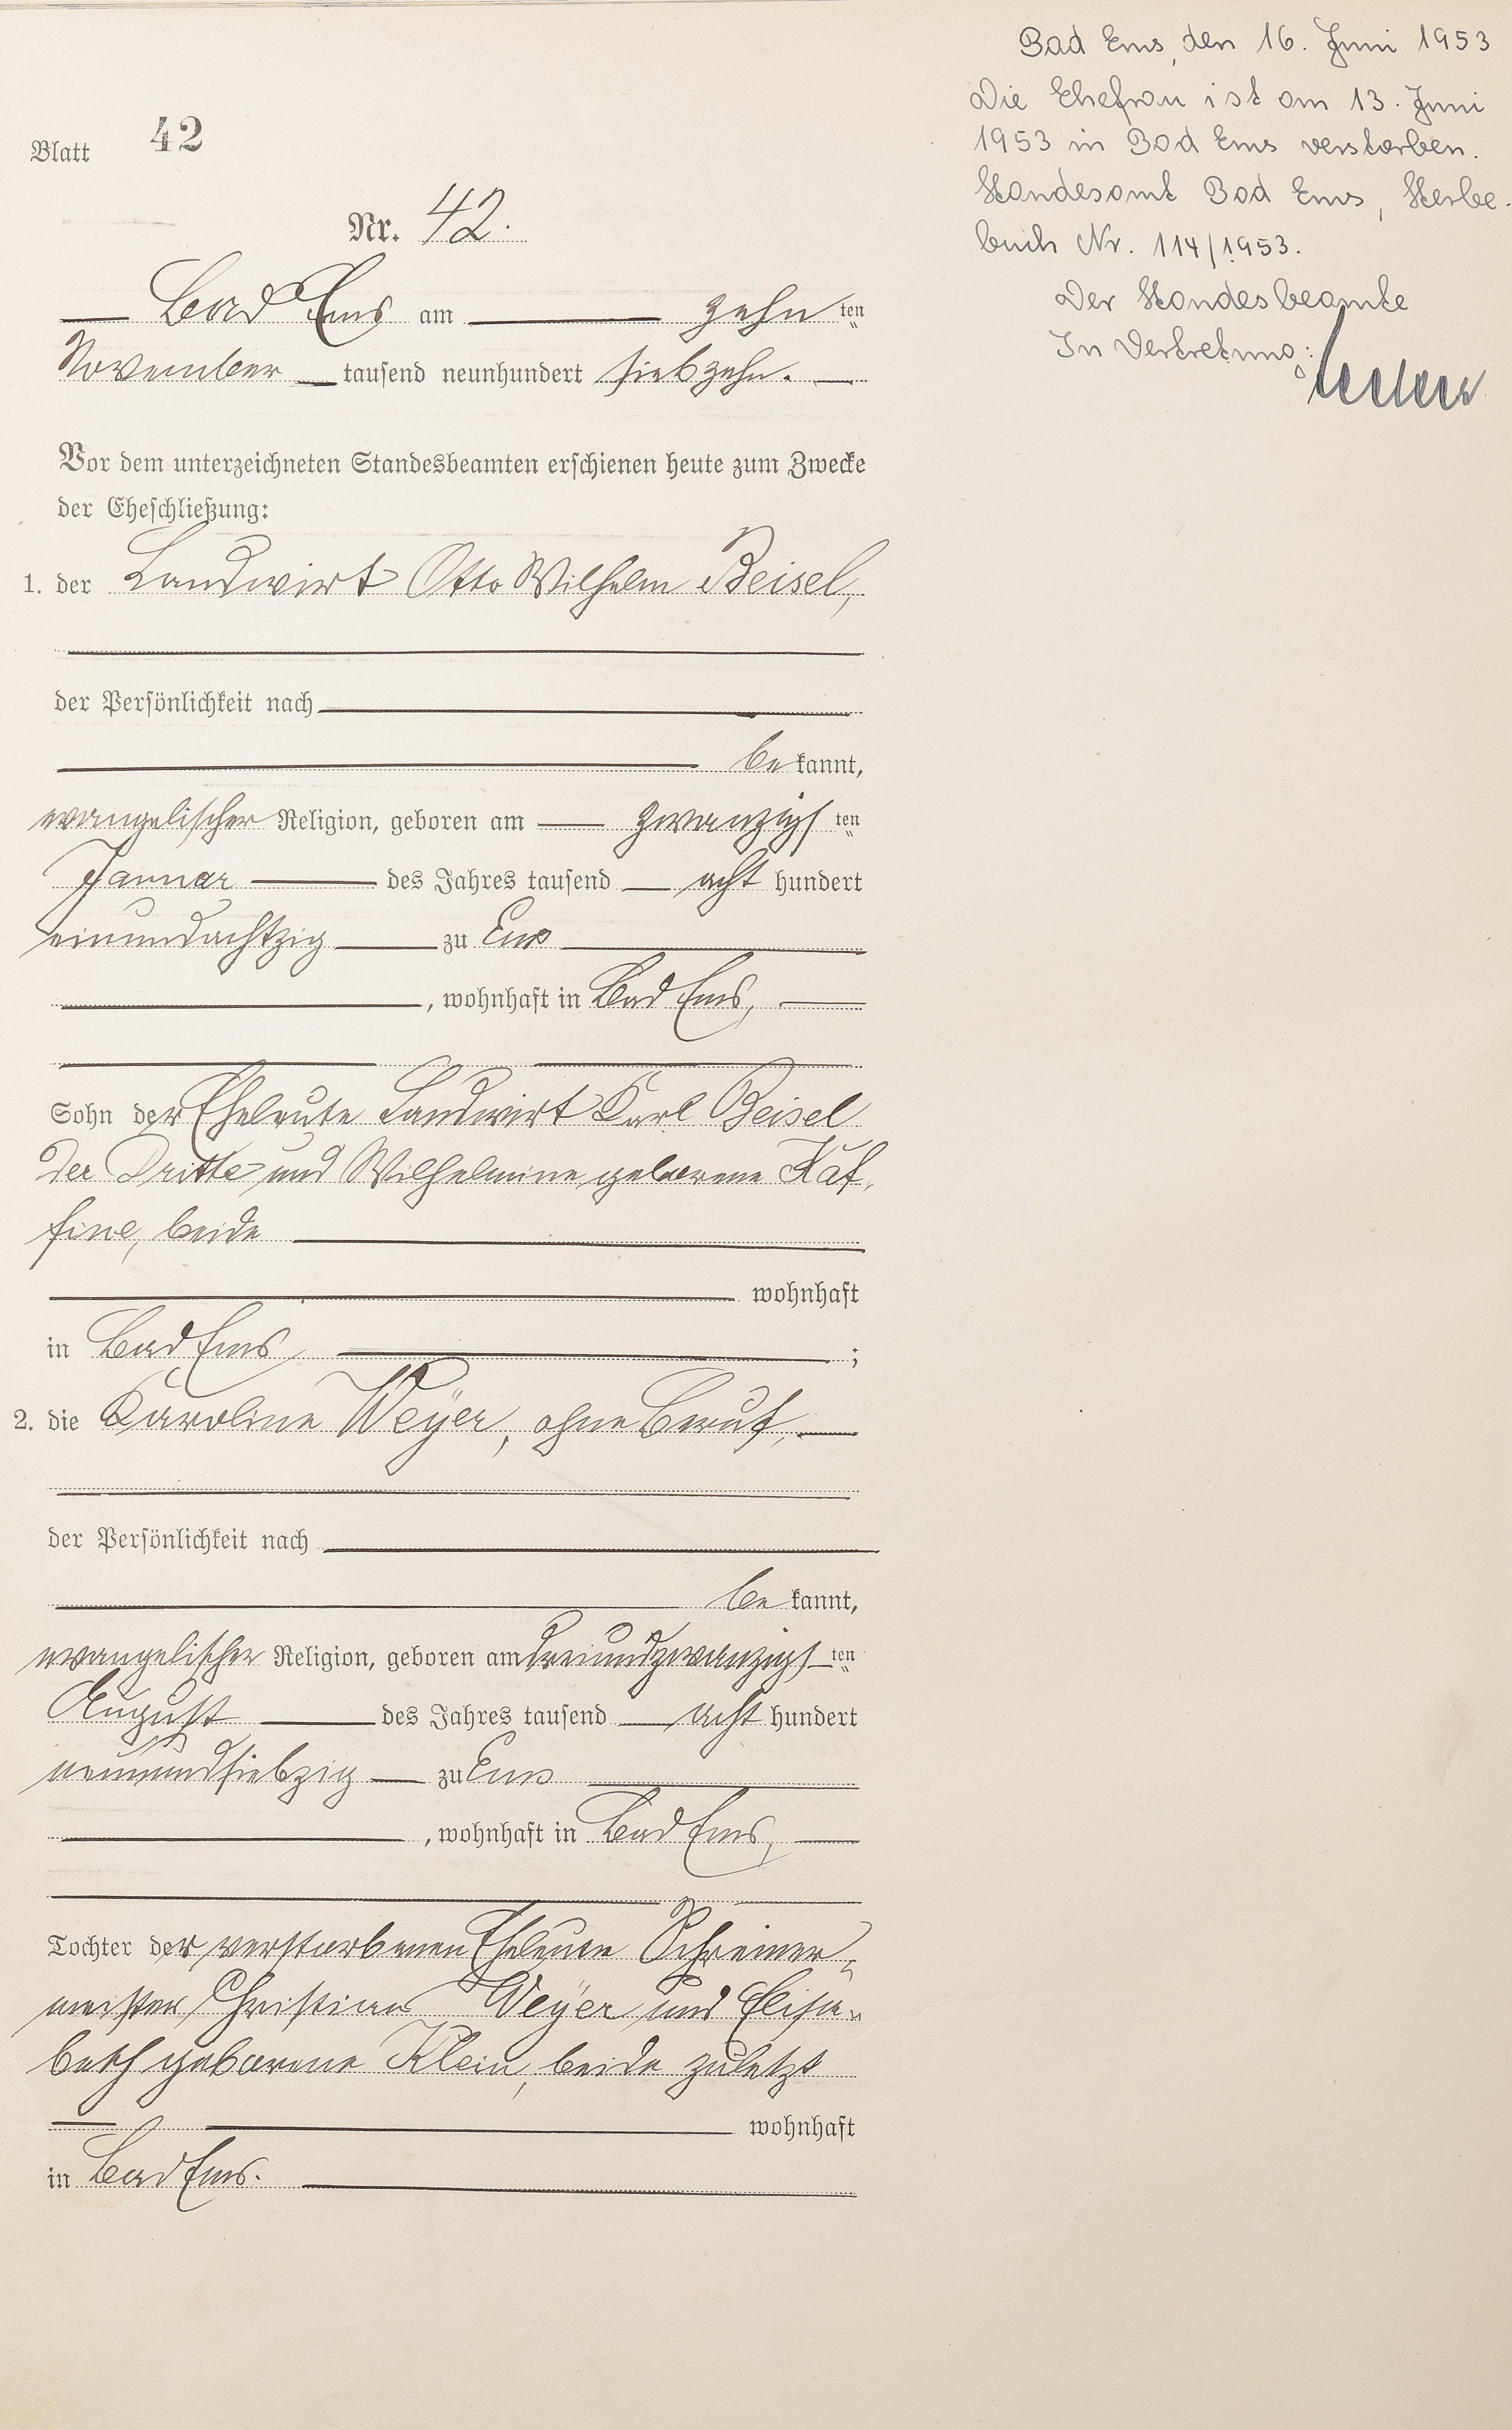 Blatt 42
Nr. 42.
Bad Ems am zehn ten
November tausend neunhundert siebzehn.
Vor dem unterzeichneten Standesbeamten erschienen heute zum Zwecke
der Eheschließung:
1. der Landwirt Otto Wilhelm Beisel,
der Persönlichkeit nach
be kannt,
evangelischer Religion, geboren am zwanzigs ten
Januar des Jahres tausend acht hundert
einundachtzig zu Ems
, wohnhaft in Bad Ems,
Sohn der Eheleute Landwirt Karl Beisel
der Dritte und Wilhelmine geborene Kaf-
fine, beide
wohnhaft
in Bad Ems ;
2. die Karoline Weÿer, ohne Beruf,
der Persönlichkeit nach
be kannt,
evangelischer Religion, geboren am dreiundzwanzigs ten
August des Jahres tausend acht hundert
neunundsiebzig zu Ems
, wohnhaft in Bad Ems,
Tochter der verstorbenen Eheleute Schreiner-
meister Christian Weÿer und Elisa-
beth geborene Klein, beide zuletzt
wohnhaft
in Bad Ems.
Bad Ems, den 16. Juni 1953
Die Ehefrau ist am 13. Juni
1953 in Bad Ems verstorben.
Standesamt Bad Ems, Sterbe-
buch Nr. 114/1953.
Der Standesbeamte
In Vertretung: